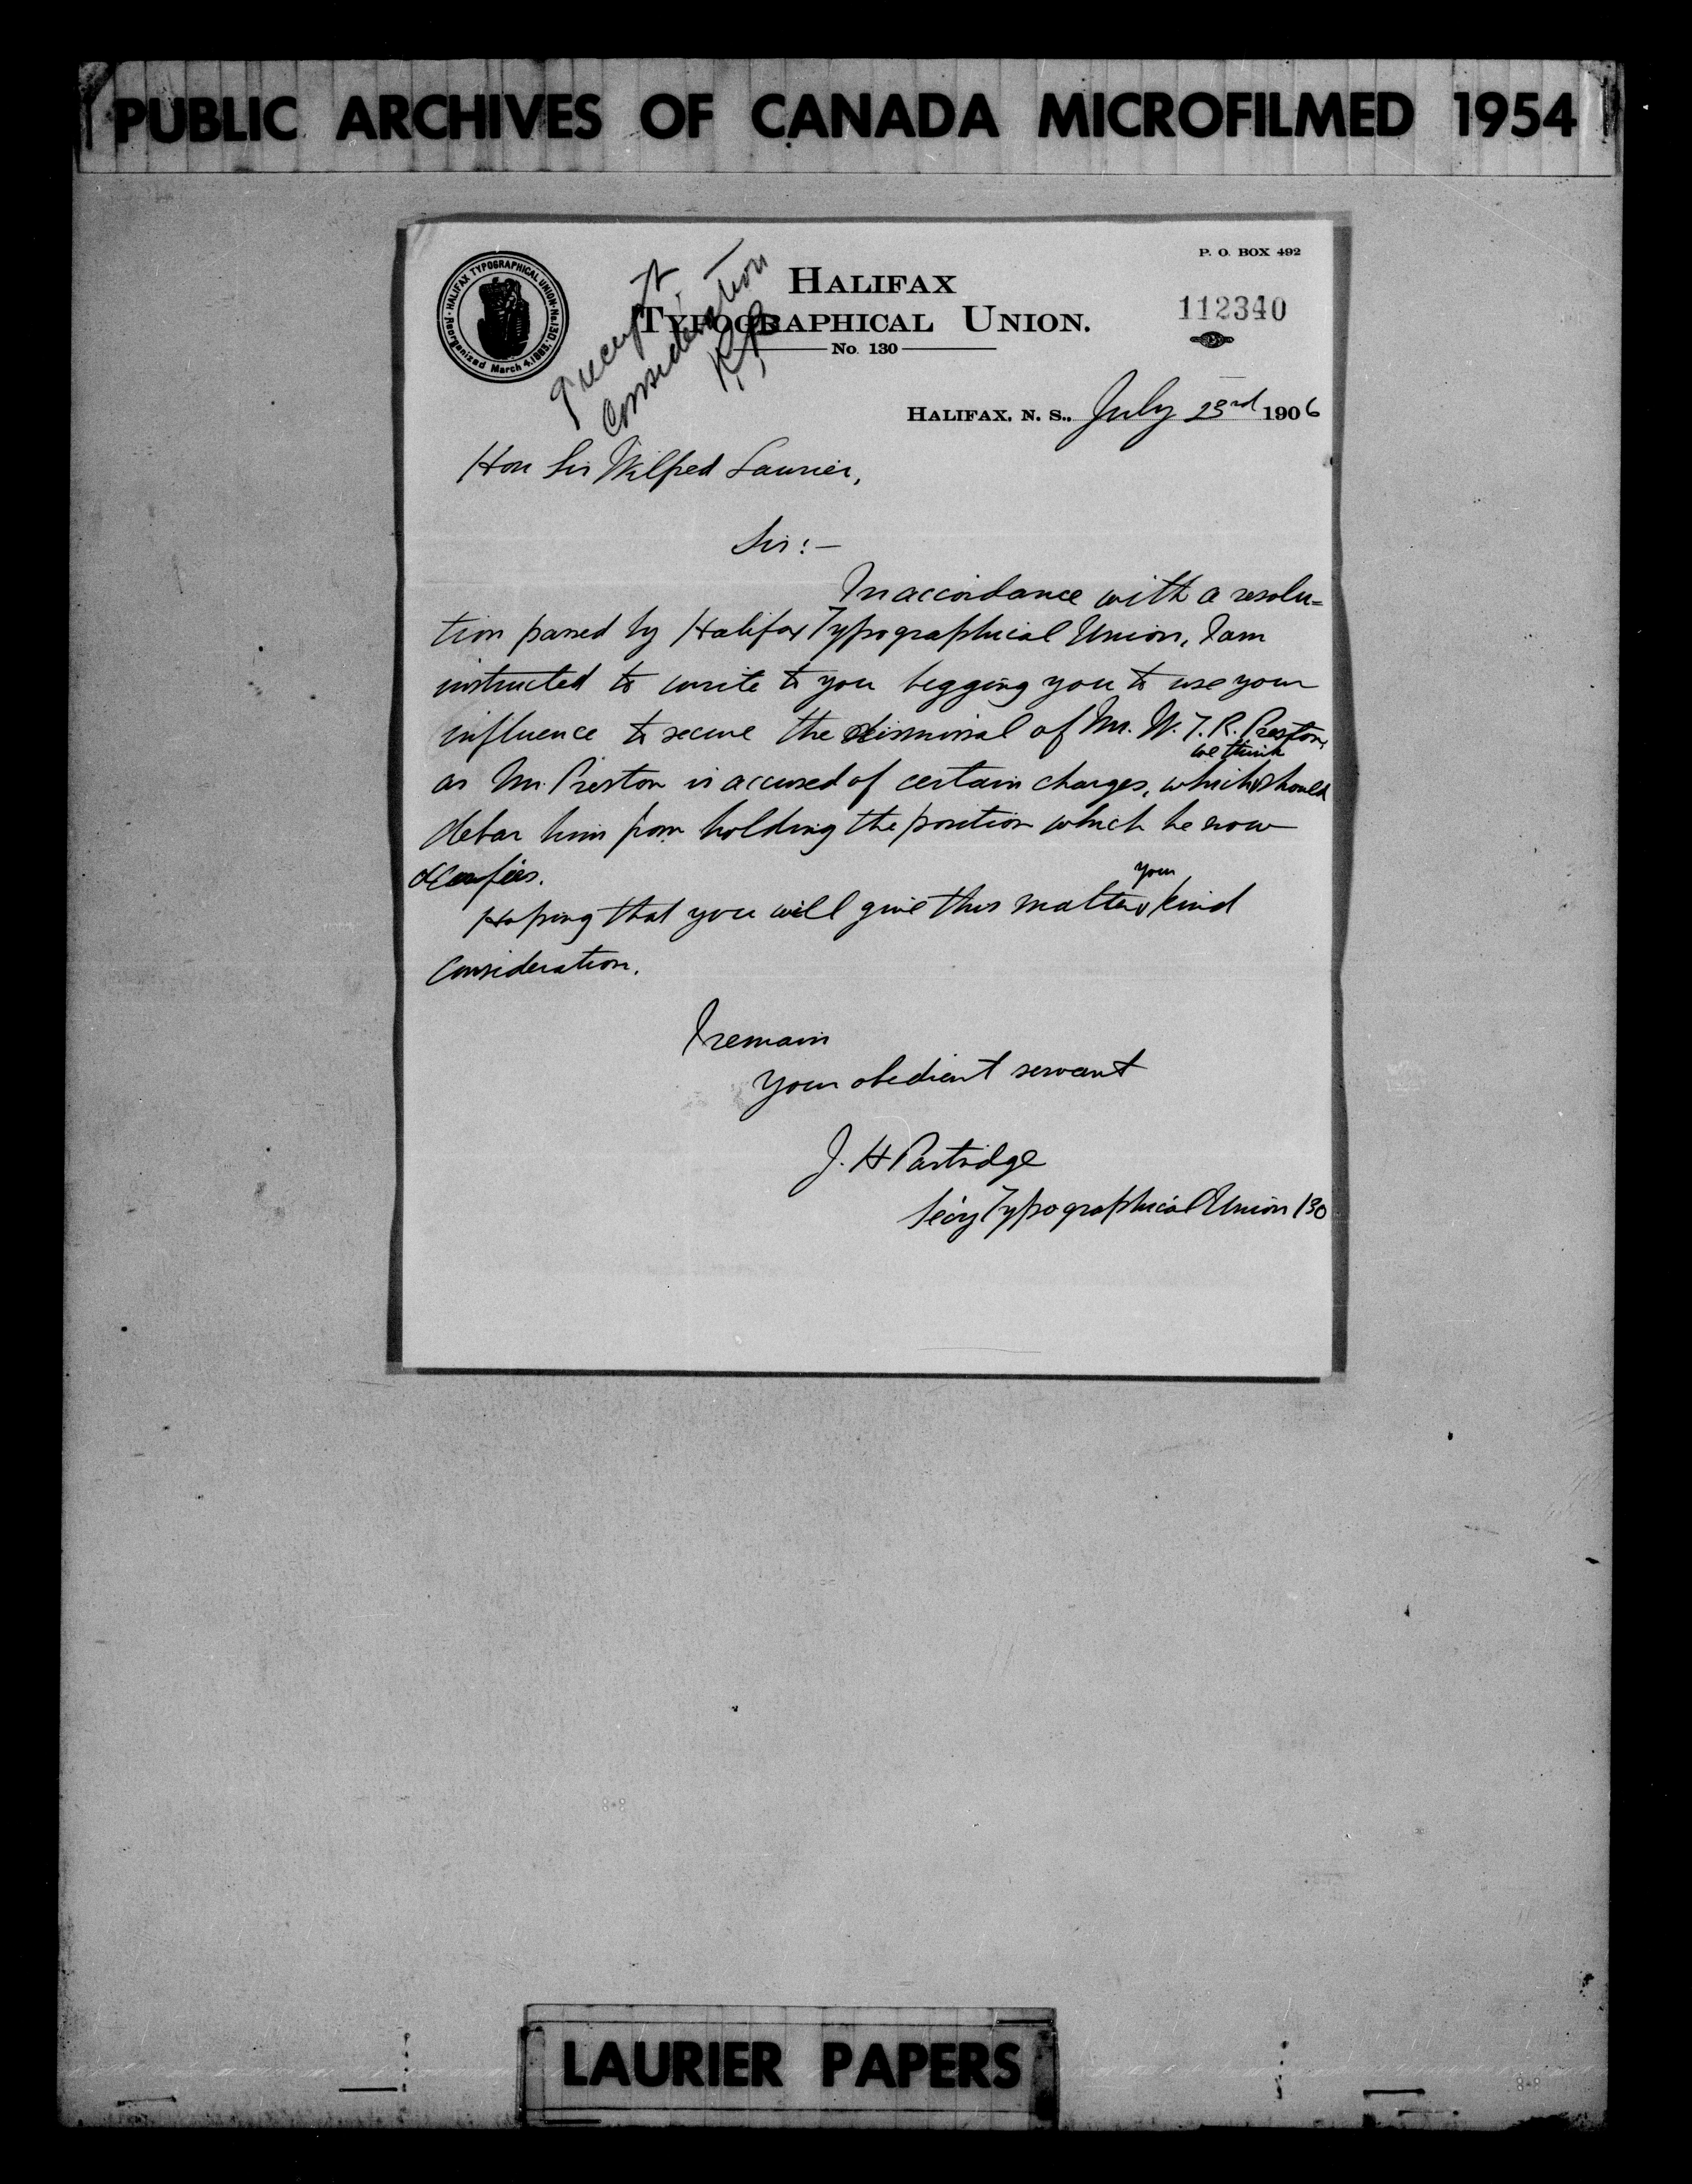 PUBLIC ARCHIVES OF CANADA MICROFILMED 1954
HALIFAX TYPOGRAPHICAL UNION No 130.
Reorganized March 4, 1883.
receipt
Consideration
P. O. BOX 492
HALIFAX
TYPOGRAPHICAL UNION.
No. 130
112340
HALIFAX, N. S., July 23rd 1906
Hon Sir Wilfred Laurier,
Sir:-
In accordance with a resolu=
tion passed by Halifax Typographical Union, I am
instructed to write to you begging you to use your
influence to secure the dismissal of Mr. W. T. R. Preston,
we think
as Mr. Preston is accused of certain charges, which should
debar him from holding the position which he now
occupies.
your
Hoping that you will give this matter kind
consideration.
I remain
Your obedient servant
J. H Partridge
Sec'y Typographical Union 130
LAURIER PAPERS